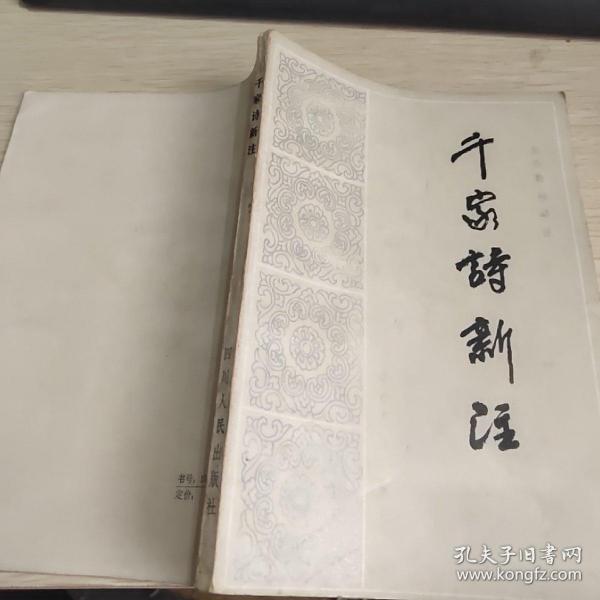 千家詩新注
千家诗新注
四川人民出版社
书号：
定价：
孔夫子旧书网
www.kongfz.com